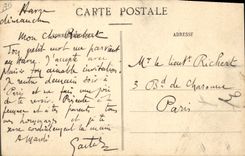 CARTE POSTALE
Havre
dimanche
Mon cher Richeat
Ton petit mot me parvient
au Havre. J'accepte avec
plaisir ton aimable invitation.
Je rentre demain soir à
Paris et me fais une joie
de te revoir. Présente
et à tes parents
mes hommages et je
serre cordialement la main
A mardi
ADRESSE
Mr le lieut. Richeat
3 Bd de Charonne
Paris